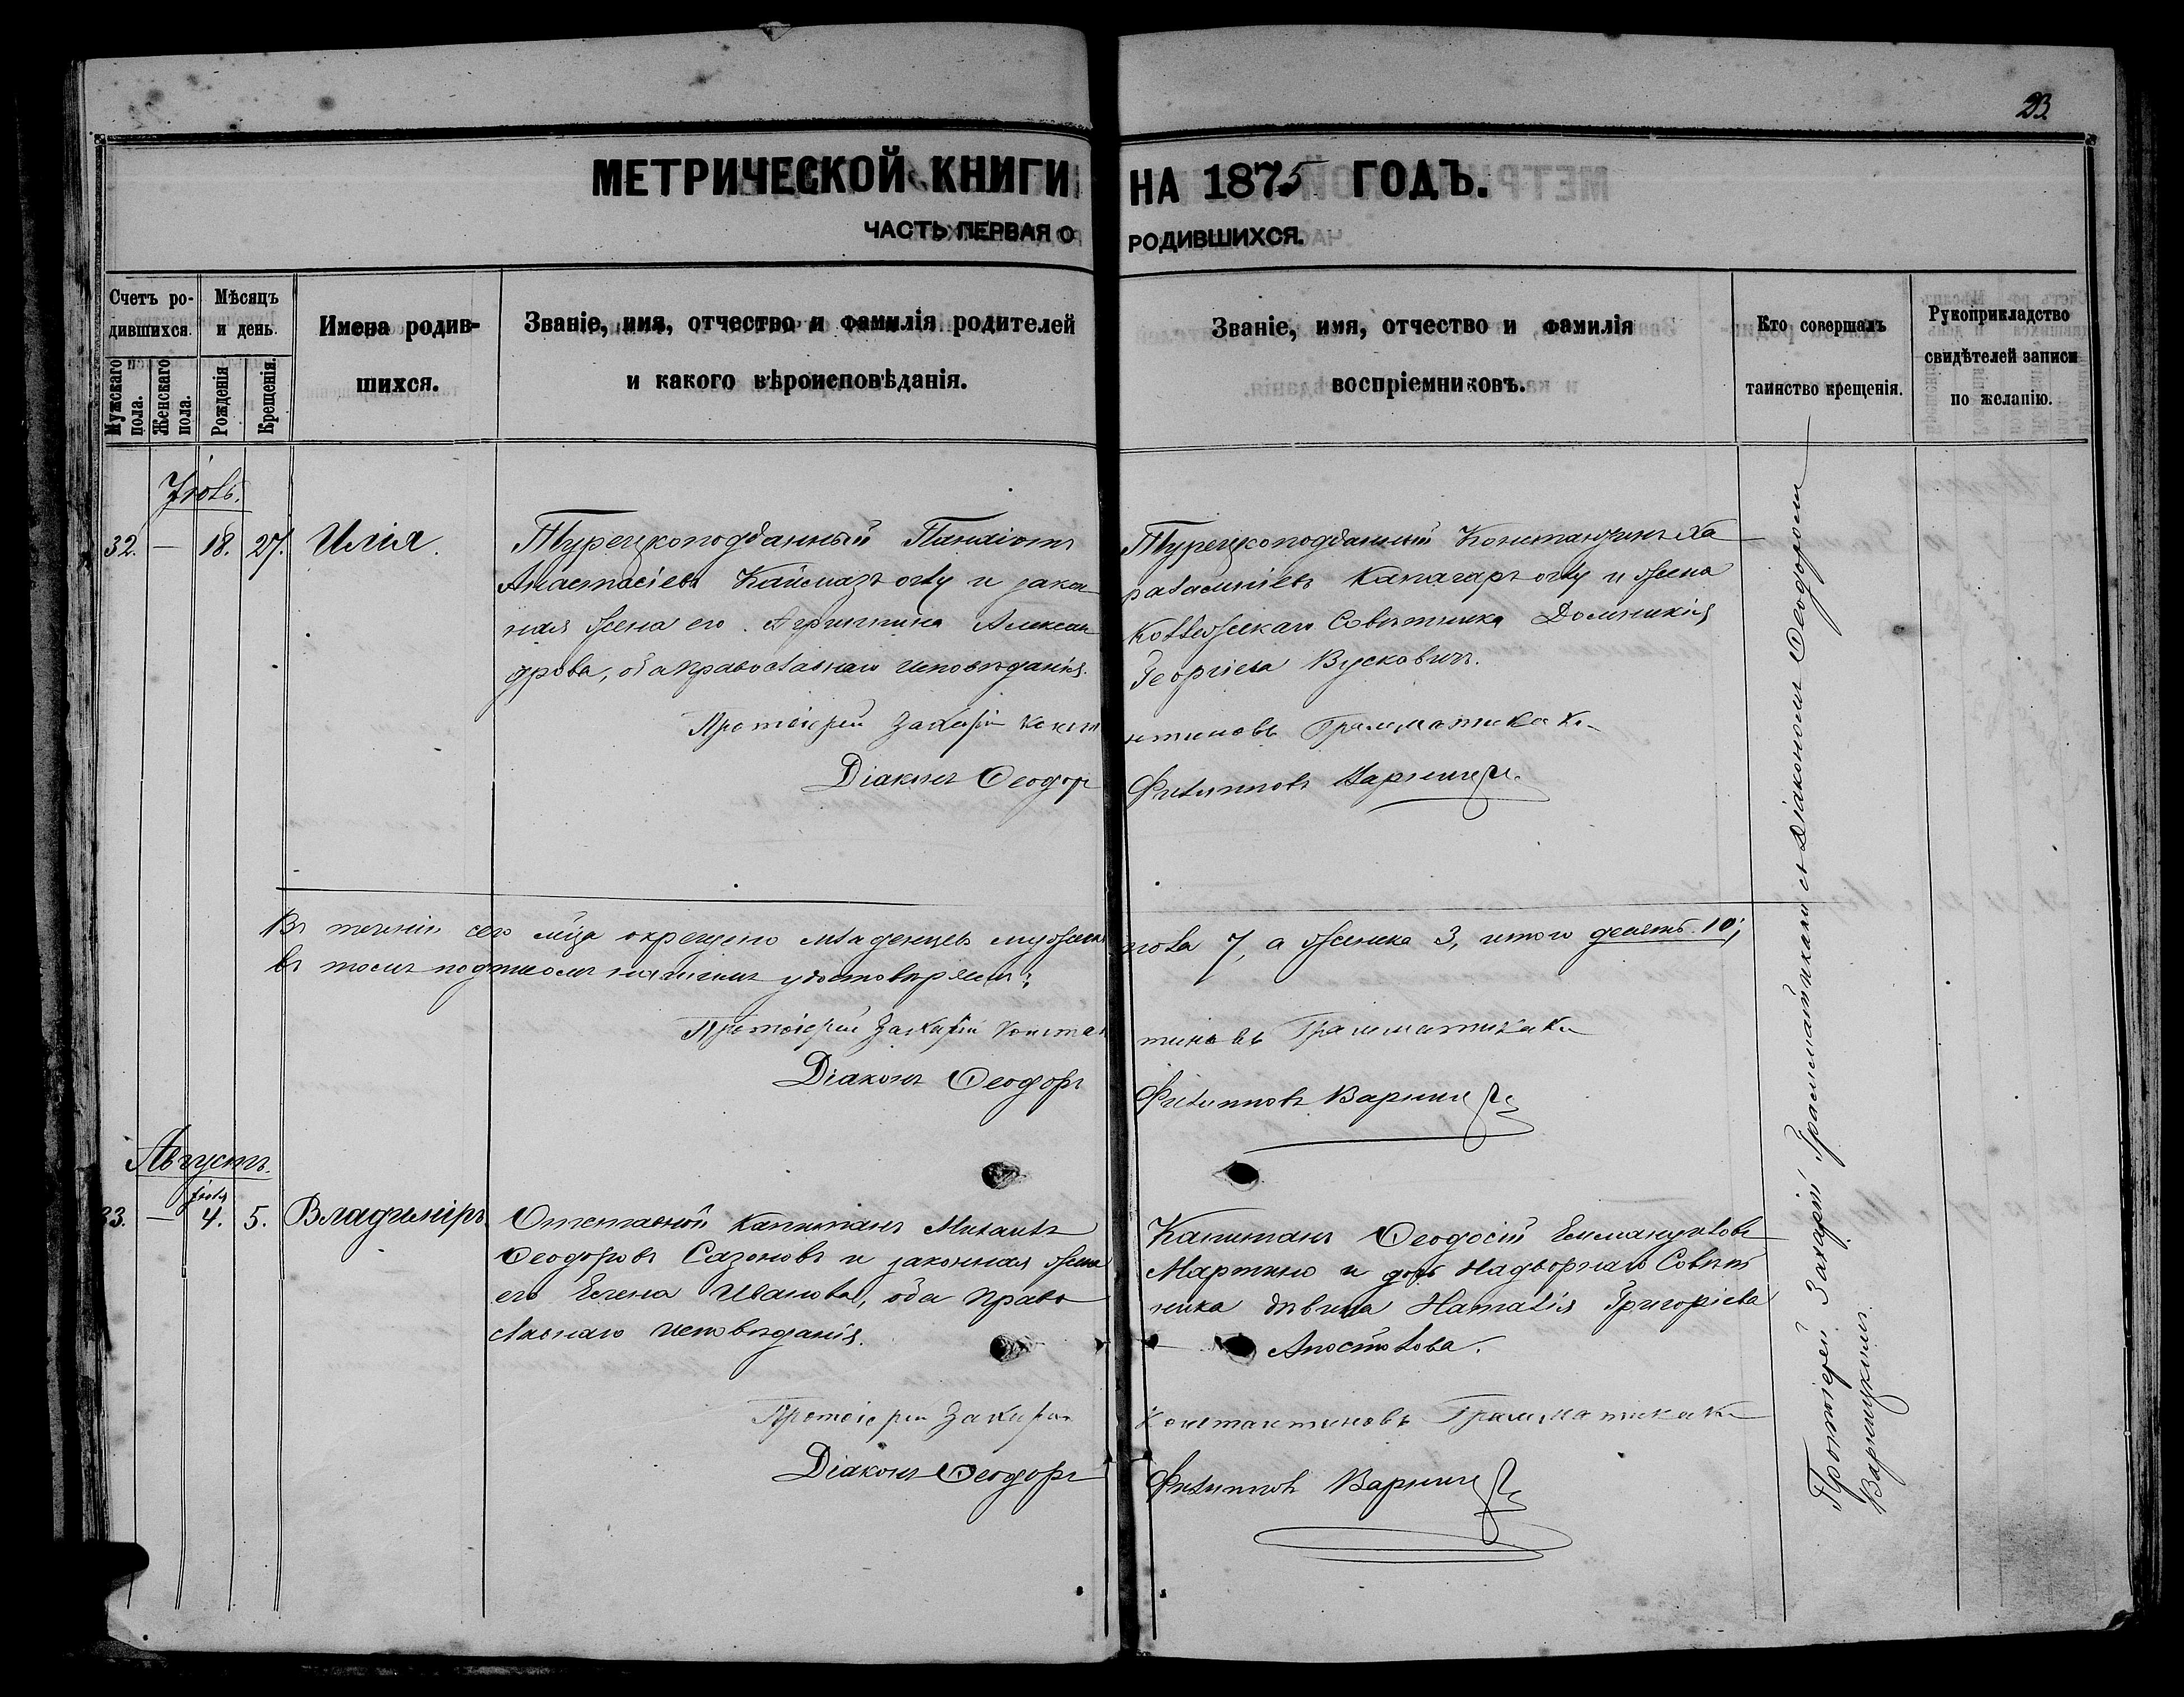 23
МЕТРИЧЕСКОЙ КНИГИ НА 1875 ГОДЪ.
ЧАСТЬ ПЕРВАЯ О РОДИВШИХСЯ.
Счетъ ро-
дившихся.
Мужскаго пола.
Женскаго пола.
Мѣсяцъ
и день.
Рожденія.
Крещенія.
Имена родив-
шихся.
Званіе, имя, отчество и фамилія родителей
и какого вѣроисповѣданія.
Званіе, имя, отчество и фамилія
воспріемниковъ.
Кто совершалъ
таинство крещенія.
Рукоприкладство
свидѣтелей записи
по желанію.
Іюль.
32. — 18. 27. Илія.
Турецкоподданный Пандіонъ
Анастасіевъ Каисмазъ оглу и закон
ная жена его Агриппина Алексан
дрова, оба православнаго исповѣданія.
Турецкоподданный Константинъ Ха
ралампіевъ Капагаръ оглу и жена
Коллежскаго Совѣтника Домникія
Георгіева Вусковичъ.
Протоіерей Захарій Константиновъ Грамматикаки
Діаконъ Ѳеодоръ Филипповъ Варницкій
Въ теченіи сего мѣсяца окрещено младенцевъ мужескаго пола 7, а женска 3, итого десять 10;
въ томъ подписомъ нашимъ удостовѣряемъ:
Протоіерей Захарій Константиновъ Грамматикаки
Діаконъ Ѳеодоръ Филипповъ Варницкій
Августъ.
Іюля
33. — 4. 5. Владиміръ
Отставной Капитанъ Михаилъ
Ѳеодоровъ Сазоновъ и законная жена
его Елена Иванова, оба право
славнаго исповѣданія.
Капитанъ Ѳеодосій Еммануиловъ
Мартино и дочь Надворнаго Совѣт
ника дѣвица Наталія Григоріева
Апостолова.
Протоіерей Захарій Константиновъ Грамматикаки
Діаконъ Ѳеодоръ Филипповъ Варницкій
Протоіерей Захарій Грамматикаки съ Діакономъ Ѳеодоромъ
Варницкимъ.